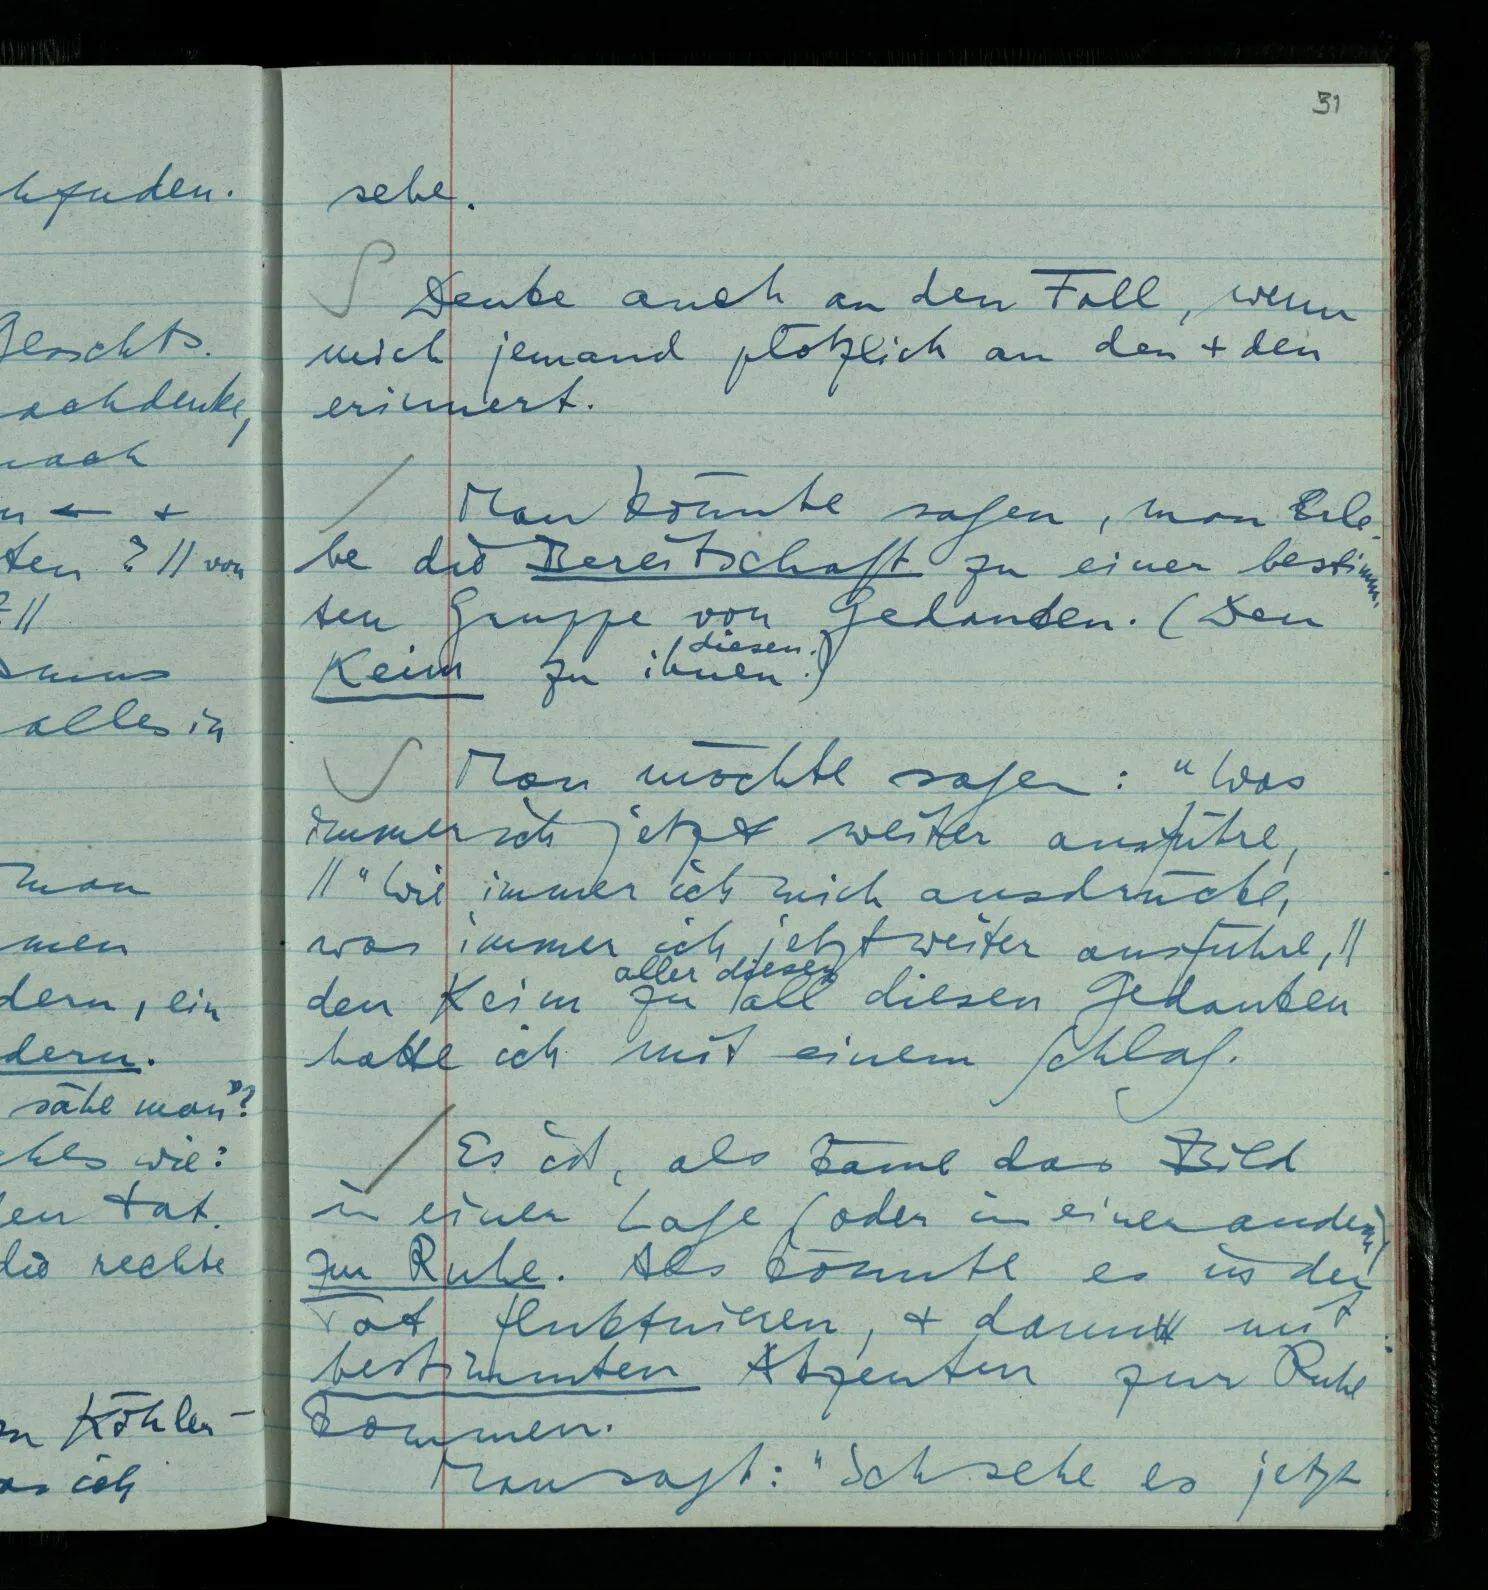 hfinden.
Gesichts.
achdenke,
nach
n ← +
ten ? // von
? //
alles in
man
men
dern, ein
dern.
sähe man"?
ches wie:
en tat.
die rechte
n Köhler-
as ich
31
sehe.
Denke auch an den Fall, wenn
mich jemand plötzlich an den + den
erinnert.
Man könnte sagen, man Erle-
be die Bereitschaft zu einer bestimm-
ten Gruppe von Gedanken. (Den
diesen.)
Keim zu ihnen.)
Man möchte sagen: "Was
immer ich jetzt weiter ausführe,
// "Wie immer ich mich ausdrücke,
was immer ich jetzt weiter ausführe, //
aller diesen
den Keim zu all diesen Gedanken
hatte ich mit einem Schlag.
Es ist, als käme das Bild
in einer Lage (oder in einer andern)
zur Ruhe. Als könnte es in der
Tat fluktuieren, + dann mit
bestimmten Akzenten zur Ruhe
kommen.
Man sagt: "Ich sehe es jetzt